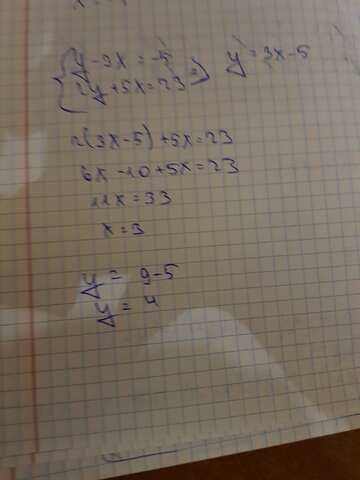 { y-3x=-5 => y=3x-5
2y+5x=23
2(3x-5)+5x=23
6x-10+5x=23
11x=33
x=3
y= 9-5
y= 4